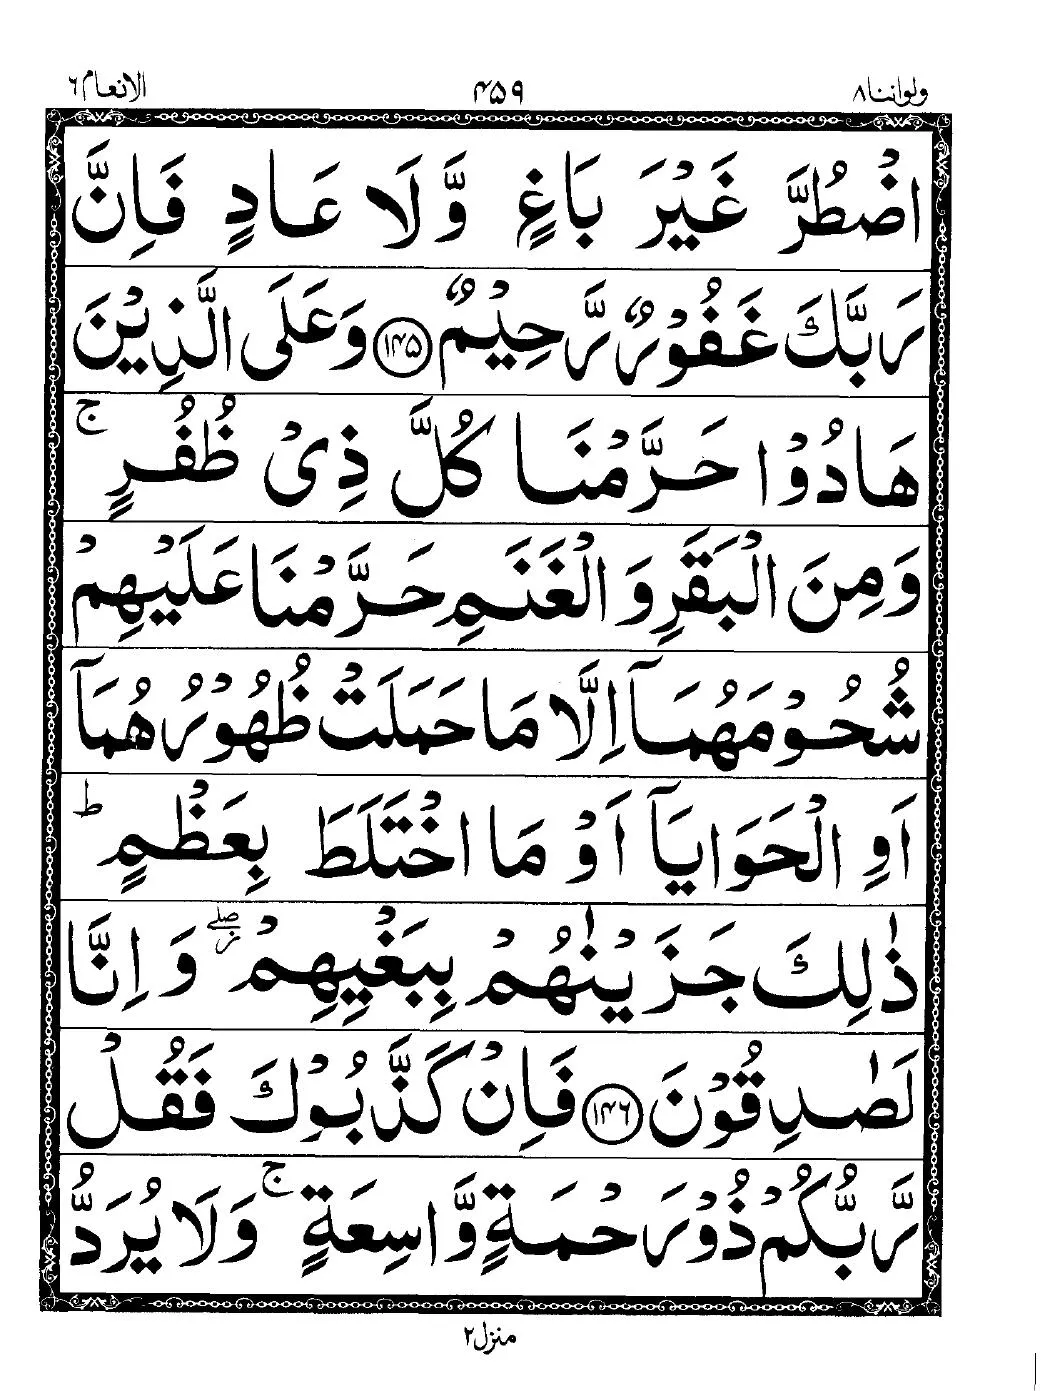 ولواننا ٨
۴۵۹
الانعام ٦
اضْطُرَّ غَيْرَ بَاغٍ وَّلَا عَادٍ فَاِنَّ
رَبَّكَ غَفُوْرٌ رَّحِيْمٌ ﴿۱۴۵﴾ وَعَلَى الَّذِيْنَ
هَادُوْا حَرَّمْنَا كُلَّ ذِىْ ظُفُرٍ ۚ
وَمِنَ الْبَقَرِ وَ الْغَنَمِ حَرَّمْنَا عَلَيْهِمْ
شُحُوْمَهُمَآ اِلَّا مَا حَمَلَتْ ظُهُوْرُهُمَآ
اَوِ الْحَوَايَآ اَوْ مَا اخْتَلَطَ بِعَظْمٍ ؕ
ذٰلِكَ جَزَيْنٰهُمْ بِبَغْيِهِمْ ۖ ز وَ اِنَّا
لَصٰدِقُوْنَ ﴿۱۴۶﴾ فَاِنْ كَذَّبُوْكَ فَقُلْ
رَّبُّكُمْ ذُوْ رَحْمَةٍ وَّاسِعَةٍ ۚ وَلَا يُرَدُّ
منزل ٢